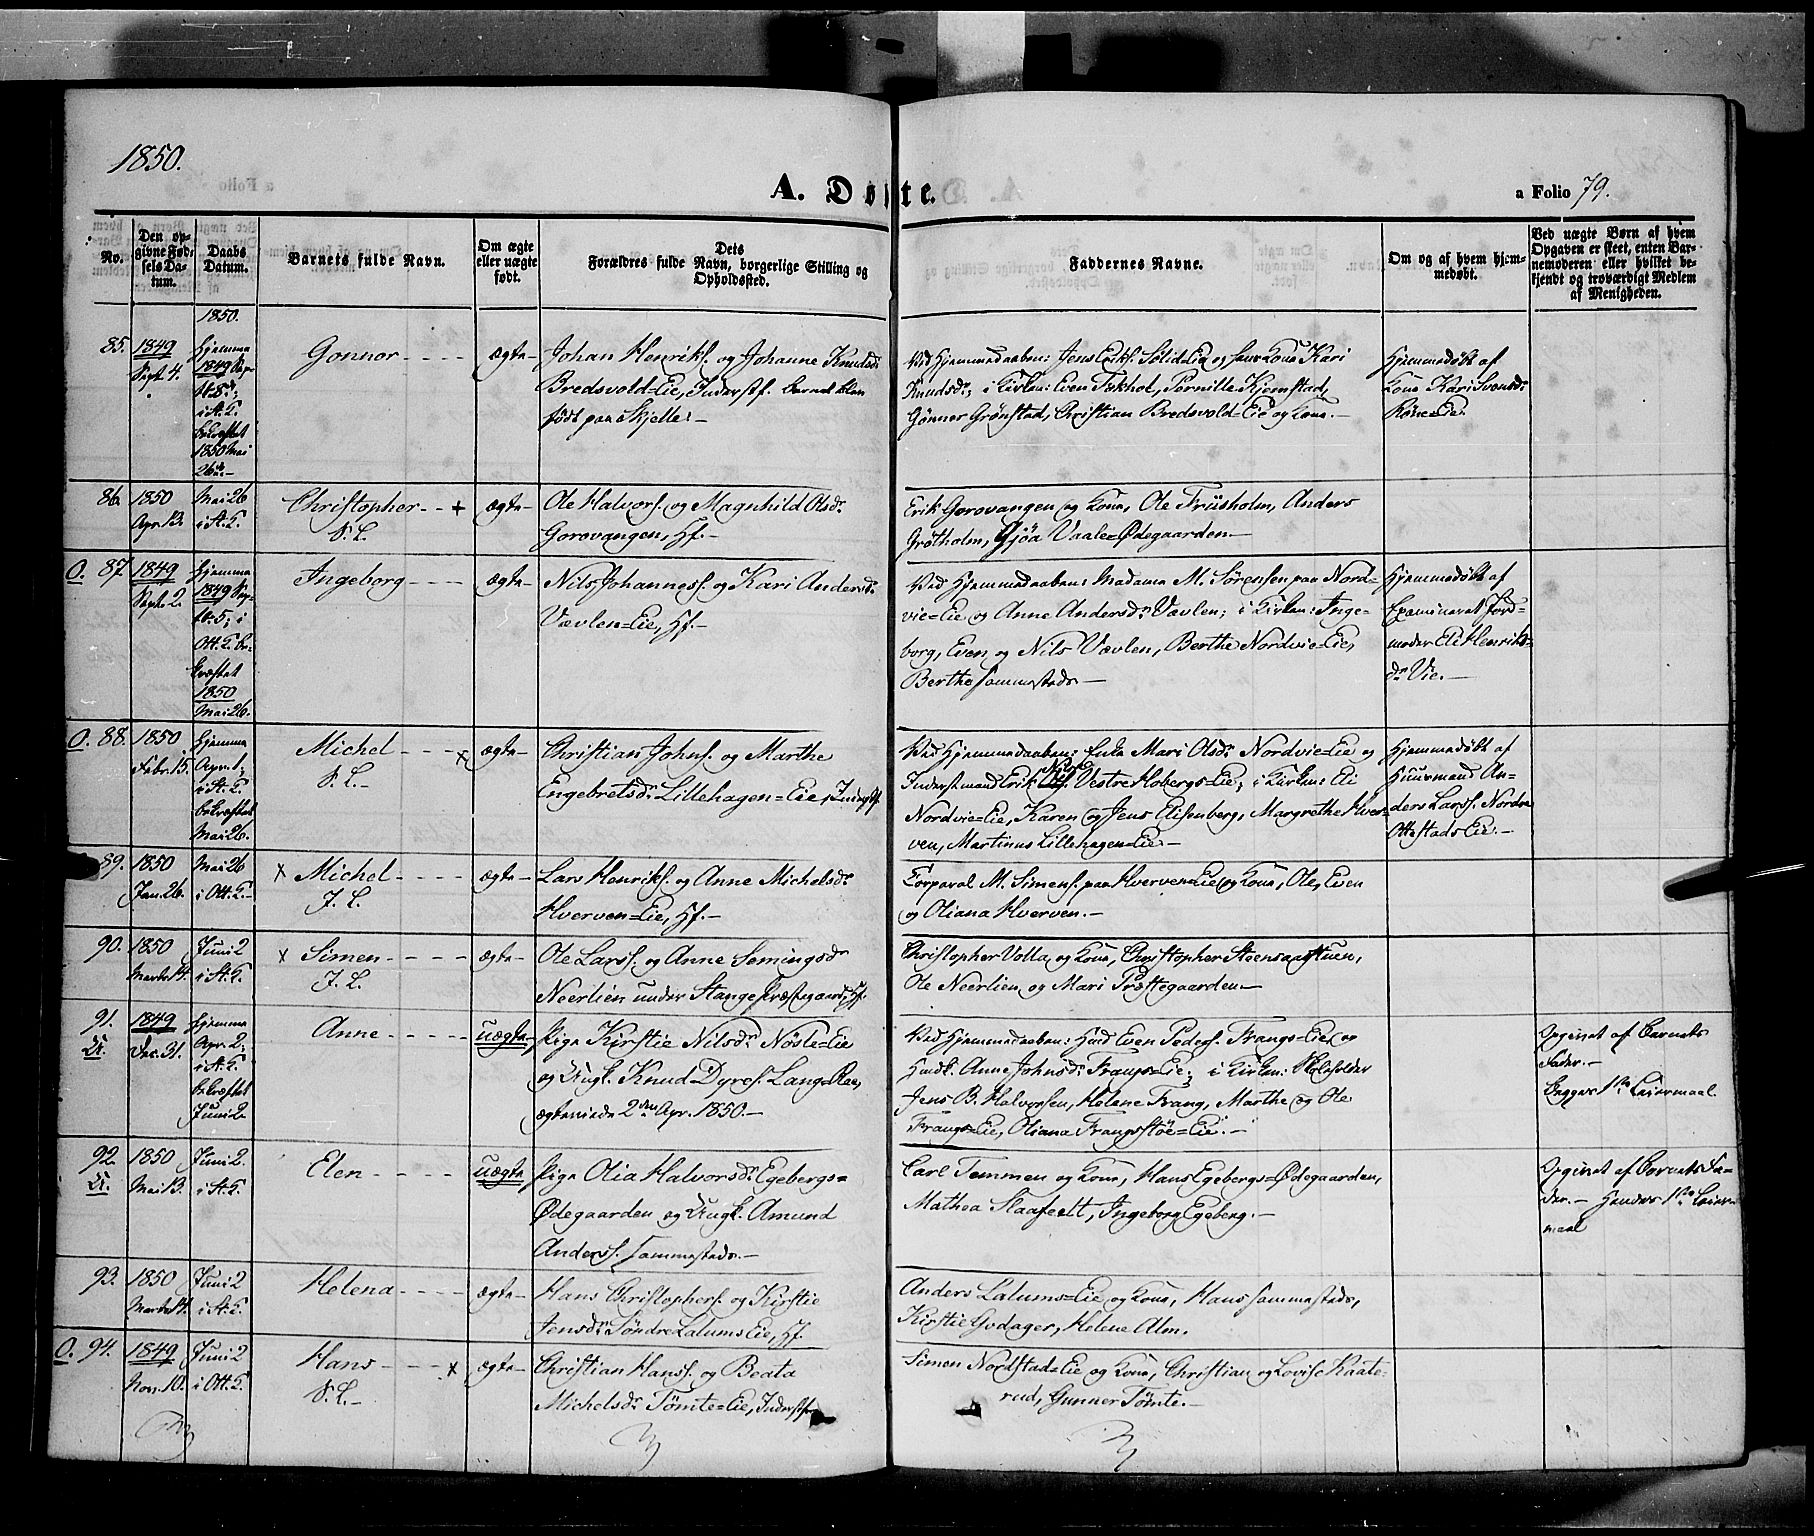 1850.
A. Døbte.
a Folio 79.
No.
Den opgivne Fødsels Datum.
Daabs Datum.
Barnets fulde Navn.
Om ægte eller uægte født.
Forældres fulde Navn, borgerlige Stilling og Opholdssted.
Faddernes Navne.
Om og af hvem hjemmedøbt.
Ved uægte Børn af hvem Opgaven er skeet, enten Barnemoderen eller hvilket bekjendt og troværdigt Medlem af Menigheden.
1850.
85.
1849
Sept. 4.
Hjemme
1849 Sep-
tb. 8de;
i St. K.
bekræftet
1850 Mai
26de
Gonnor
ægte
Johan Henriks. og Johanne Knudsdr
Bredsvold=Eie, Inderstf. Barnet blev
født paa Skjelle.
Ved Hjemmedaaben: Jens Eriks. Sølid=Eie og hans Kone Kari
Knudsdr; i Kirken: Even Tokhol, Pernille Kjemstad,
Gønner Grønstad, Christian Bredsvold=Eie og Kone.
Hjemmedøbt af
Kone Kari Svensdr
Røne=Eie.
86.
1850
Apr. 13.
Mai 26
i St. K.
Christopher +
S. L.
ægte
Ole Halvors. og Magnhild Olsdr
Gorovangen, Hf.
Erik Gorovangen og Kone, Ole Friisholm, Anders
Grøtholm, Gjøa Vaale=Ødegaarden
O. 87.
1849
Sept. 2.
Hjemme
1849 Sep-
tb. 5; i
Ott. K. be-
kræftet
1850
Mai 26.
Ingeborg
ægte
Nils Johanness. og Kari Andersdr
Vævlen=Eie, Hf.
Ved Hjemmedaaben: Madame M. Sørensen paa Nord-
vie=Eie og Anne Andersdr Vævlen; i Kirken: Inge-
borg, Even og Nils Vævlen, Berthe Nordvie=Eie,
Berthe sammestads
Hjemmedøbt af
Examineret Jord-
moder Eli Henriks-
dr Vie.
O. 88.
1850
Febr. 15.
Hjemme
Apr. 1;
i St. K.
bekræftet
Mai 26.
Michel x
S. L.
ægte
Christian Johns. og Marthe
Engebretsdr Lillehagen=Eie, Inderstf.
Ved Hjemmedaaben: Enke Mari Olsdr Nordvie=Eie og
Inderstmand Erik Nils. Vestre Hobergs=Eie; i Kirken: Eli
Nordvie=Eie, Karen og Jens Elisenberg, Margrethe Hver-
ven, Martinus Lillehagen=Eie
Hjemmedøbt af
Huusmand An-
ders Larss. Nordre
Ottestads Eie.
89.
1850
Jan. 26.
Mai 26
i Ott. K.
x Michel
J. L.
ægte
Lars Henriks. og Anne Michelsdr
Hverven=Eie, Hf.
Corporal M. Simens. paa Hverven=Eie og Kone, Ole, Even
og Oliana Hverven.
90.
1850
Marts 14.
Juni 2
i St. K.
x Simen
J. L.
ægte
Ole Larss. og Anne Semingsdr
Neerlien under Stange Præstegaard, Hf.
Christopher Volla og Kone, Christopher Steensaastuen,
Ole Neerlien og Mari Præstegaarden
91.
U.
1849
Dec. 31.
Hjemme
Apr. 2;
i St. K.
bekræftet
Juni 2
Anne
uægte
Pige Kirstie Nilsdr Nøsle=Eie
og Ungk. Knud Dyres. Lang=Ree,
ægteviede 2den Apr. 1850.
Ved Hjemmedaaben: Huusf. Even Peders. Frangs=Eie og
Huusk. Anne Johnsdr Frangs=Eie; i Kirken: Skoleholder
Jens B. Halvorsen, Helene Frang, Marthe og Ole
Frangs=Eie, Oliana Frangsstøe=Eie.
Opgivet af Barnets
Fader.
Begges 1ste Leiermaal.
92.
U.
1850
Mai 13.
Juni 2.
i St. K.
Elen
uægte
Pige Olia Halvorsdr Egebergs=
Ødegaarden og Ungk. Amund
Anderss. sammestads.
Carl Temmen og Kone, Hans Egebergs=Ødegaarden,
Mathea Staafeldt, Ingeborg Egeberg.
Opgivet af Barnets Fa-
der. Hendes 1ste Leier-
maal
93.
1850
Marts 14.
Juni 2
i St. K.
Helena
ægte
Hans Christophers. og Kirstie
Jensdr Søndre Lalums Eie, Hf.
Anders Lalums=Eie og Kone, Hans sammestads,
Kirstie Godager, Helene Alm.
O. 94.
1849
Nov. 10.
Juni 2
i Ott. K.
Hans x
S. L.
ægte
Christian Hanss. og Beata
Michelsdr Tømte=Eie, Inderstf.
Simen Nordstad=Eie og Kone, Christian og Lovise Kaate-
rud, Gunner Tømte.